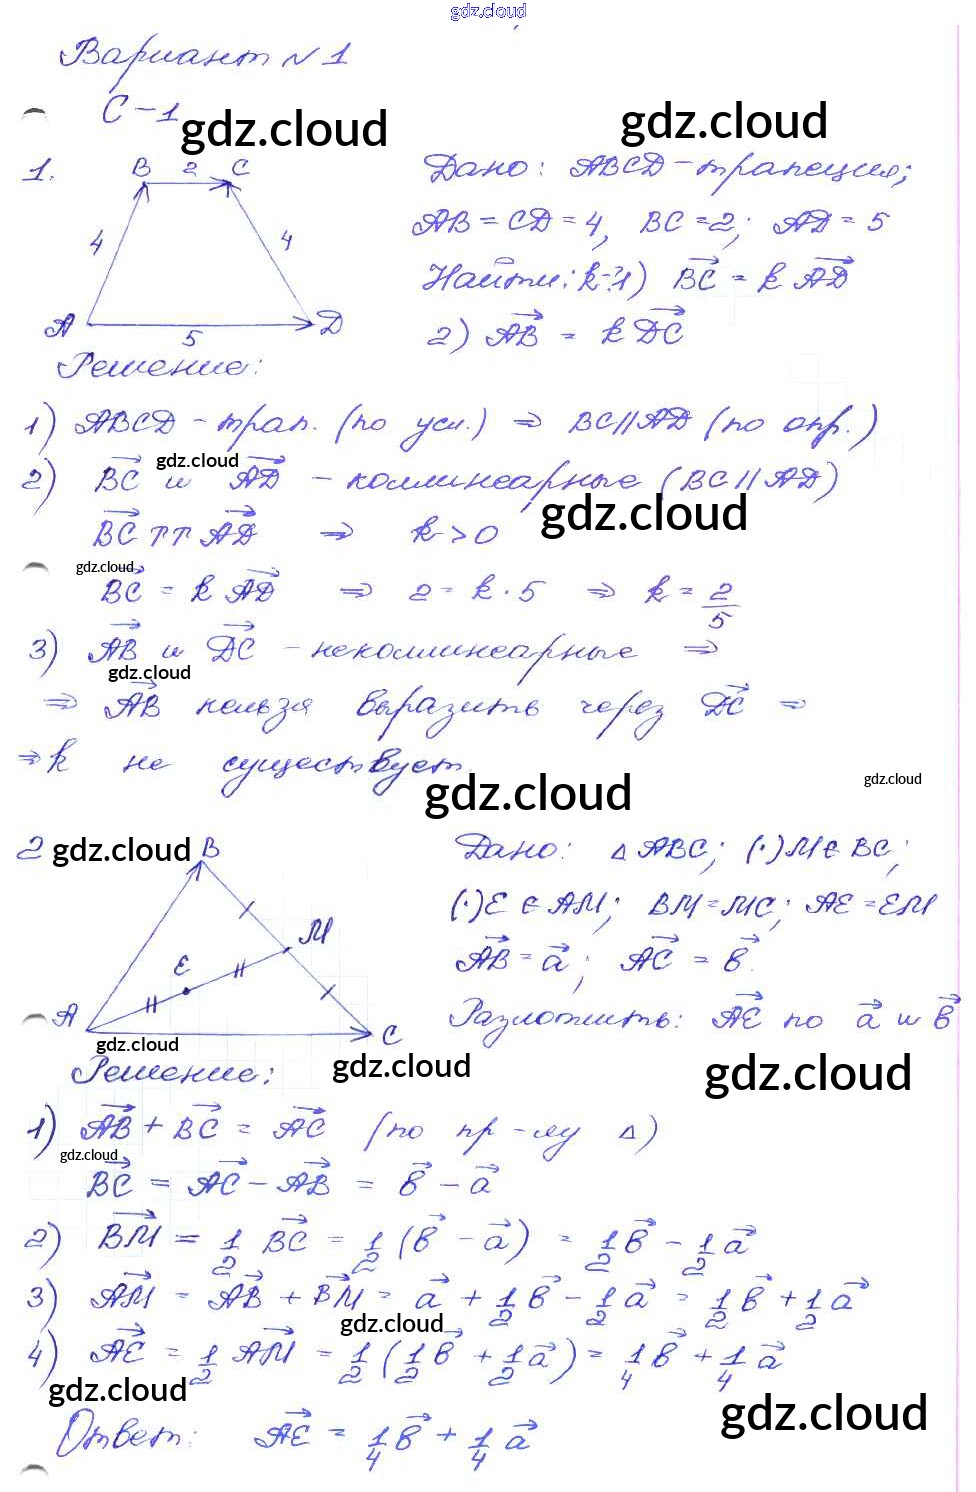 gdz.cloud
Вариант № 1
С-1
gdz.cloud gdz.cloud
1. B 2 C
4 4
A 5 D
Дано: ABCD - трапеция;
AB = CD = 4, BC = 2; AD = 5
Найти: k-? 1) BC⃗ = k AD⃗
2) AB⃗ = k DC⃗
Решение:
1) ABCD - трап. (по усл.) ⇒ BC||AD (по опр.)
gdz.cloud
2) BC⃗ и AD⃗ - коллинеарные (BC || AD)
gdz.cloud
BC⃗ ↑↑ AD⃗ ⇒ k > 0
gdz.cloud
BC⃗ = k AD⃗ ⇒ 2 = k · 5 ⇒ k = 2/5
3) AB⃗ и DC⃗ - неколлинеарные ⇒
gdz.cloud
⇒ AB⃗ нельзя выразить через DC⃗ ⇒
⇒ k не существует.
gdz.cloud gdz.cloud
2 gdz.cloud B
M
E
A C
Дано: △ ABC; (·) M ∈ BC;
(·) E ∈ AM; BM = MC; AE = EM
AB⃗ = a⃗; AC⃗ = b⃗.
Разложить: AE⃗ по a⃗ и b⃗
gdz.cloud gdz.cloud gdz.cloud
Решение:
1) AB⃗ + BC⃗ = AC⃗ (по пр-лу △)
gdz.cloud
BC⃗ = AC⃗ - AB⃗ = b⃗ - a⃗
2) BM⃗ = 1/2 BC⃗ = 1/2 (b⃗ - a⃗) = 1/2 b⃗ - 1/2 a⃗
3) AM⃗ = AB⃗ + BM⃗ = a⃗ + 1/2 b⃗ - 1/2 a⃗ = 1/2 b⃗ + 1/2 a⃗
gdz.cloud
4) AE⃗ = 1/2 AM⃗ = 1/2 (1/2 b⃗ + 1/2 a⃗) = 1/4 b⃗ + 1/4 a⃗
gdz.cloud gdz.cloud
Ответ: AE⃗ = 1/4 b⃗ + 1/4 a⃗